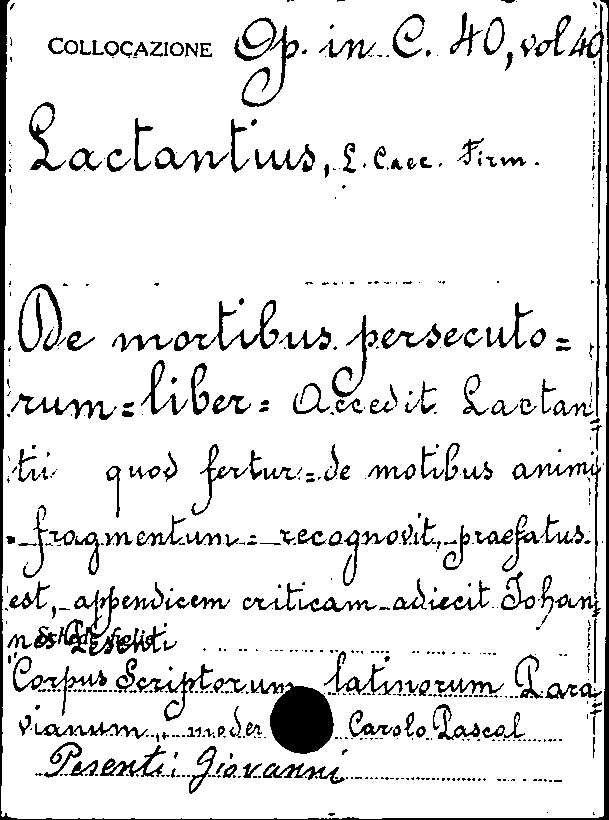 COLLOCAZIONE Op. in C. 40, vol 40
Lactantius, L. Caec. Firm.
De mortibus persecuto=
rum=liber= Accedit Lactan=
tii quod fertur=de motibus animi
fragmentum= recognovit, praefatus
est, appendicem criticam adiecit Johan=
nes Pesenti
Corpus Scriptorum latinorum Para=
vianum, moder Carolo Pascal
Pesenti: Giovanni